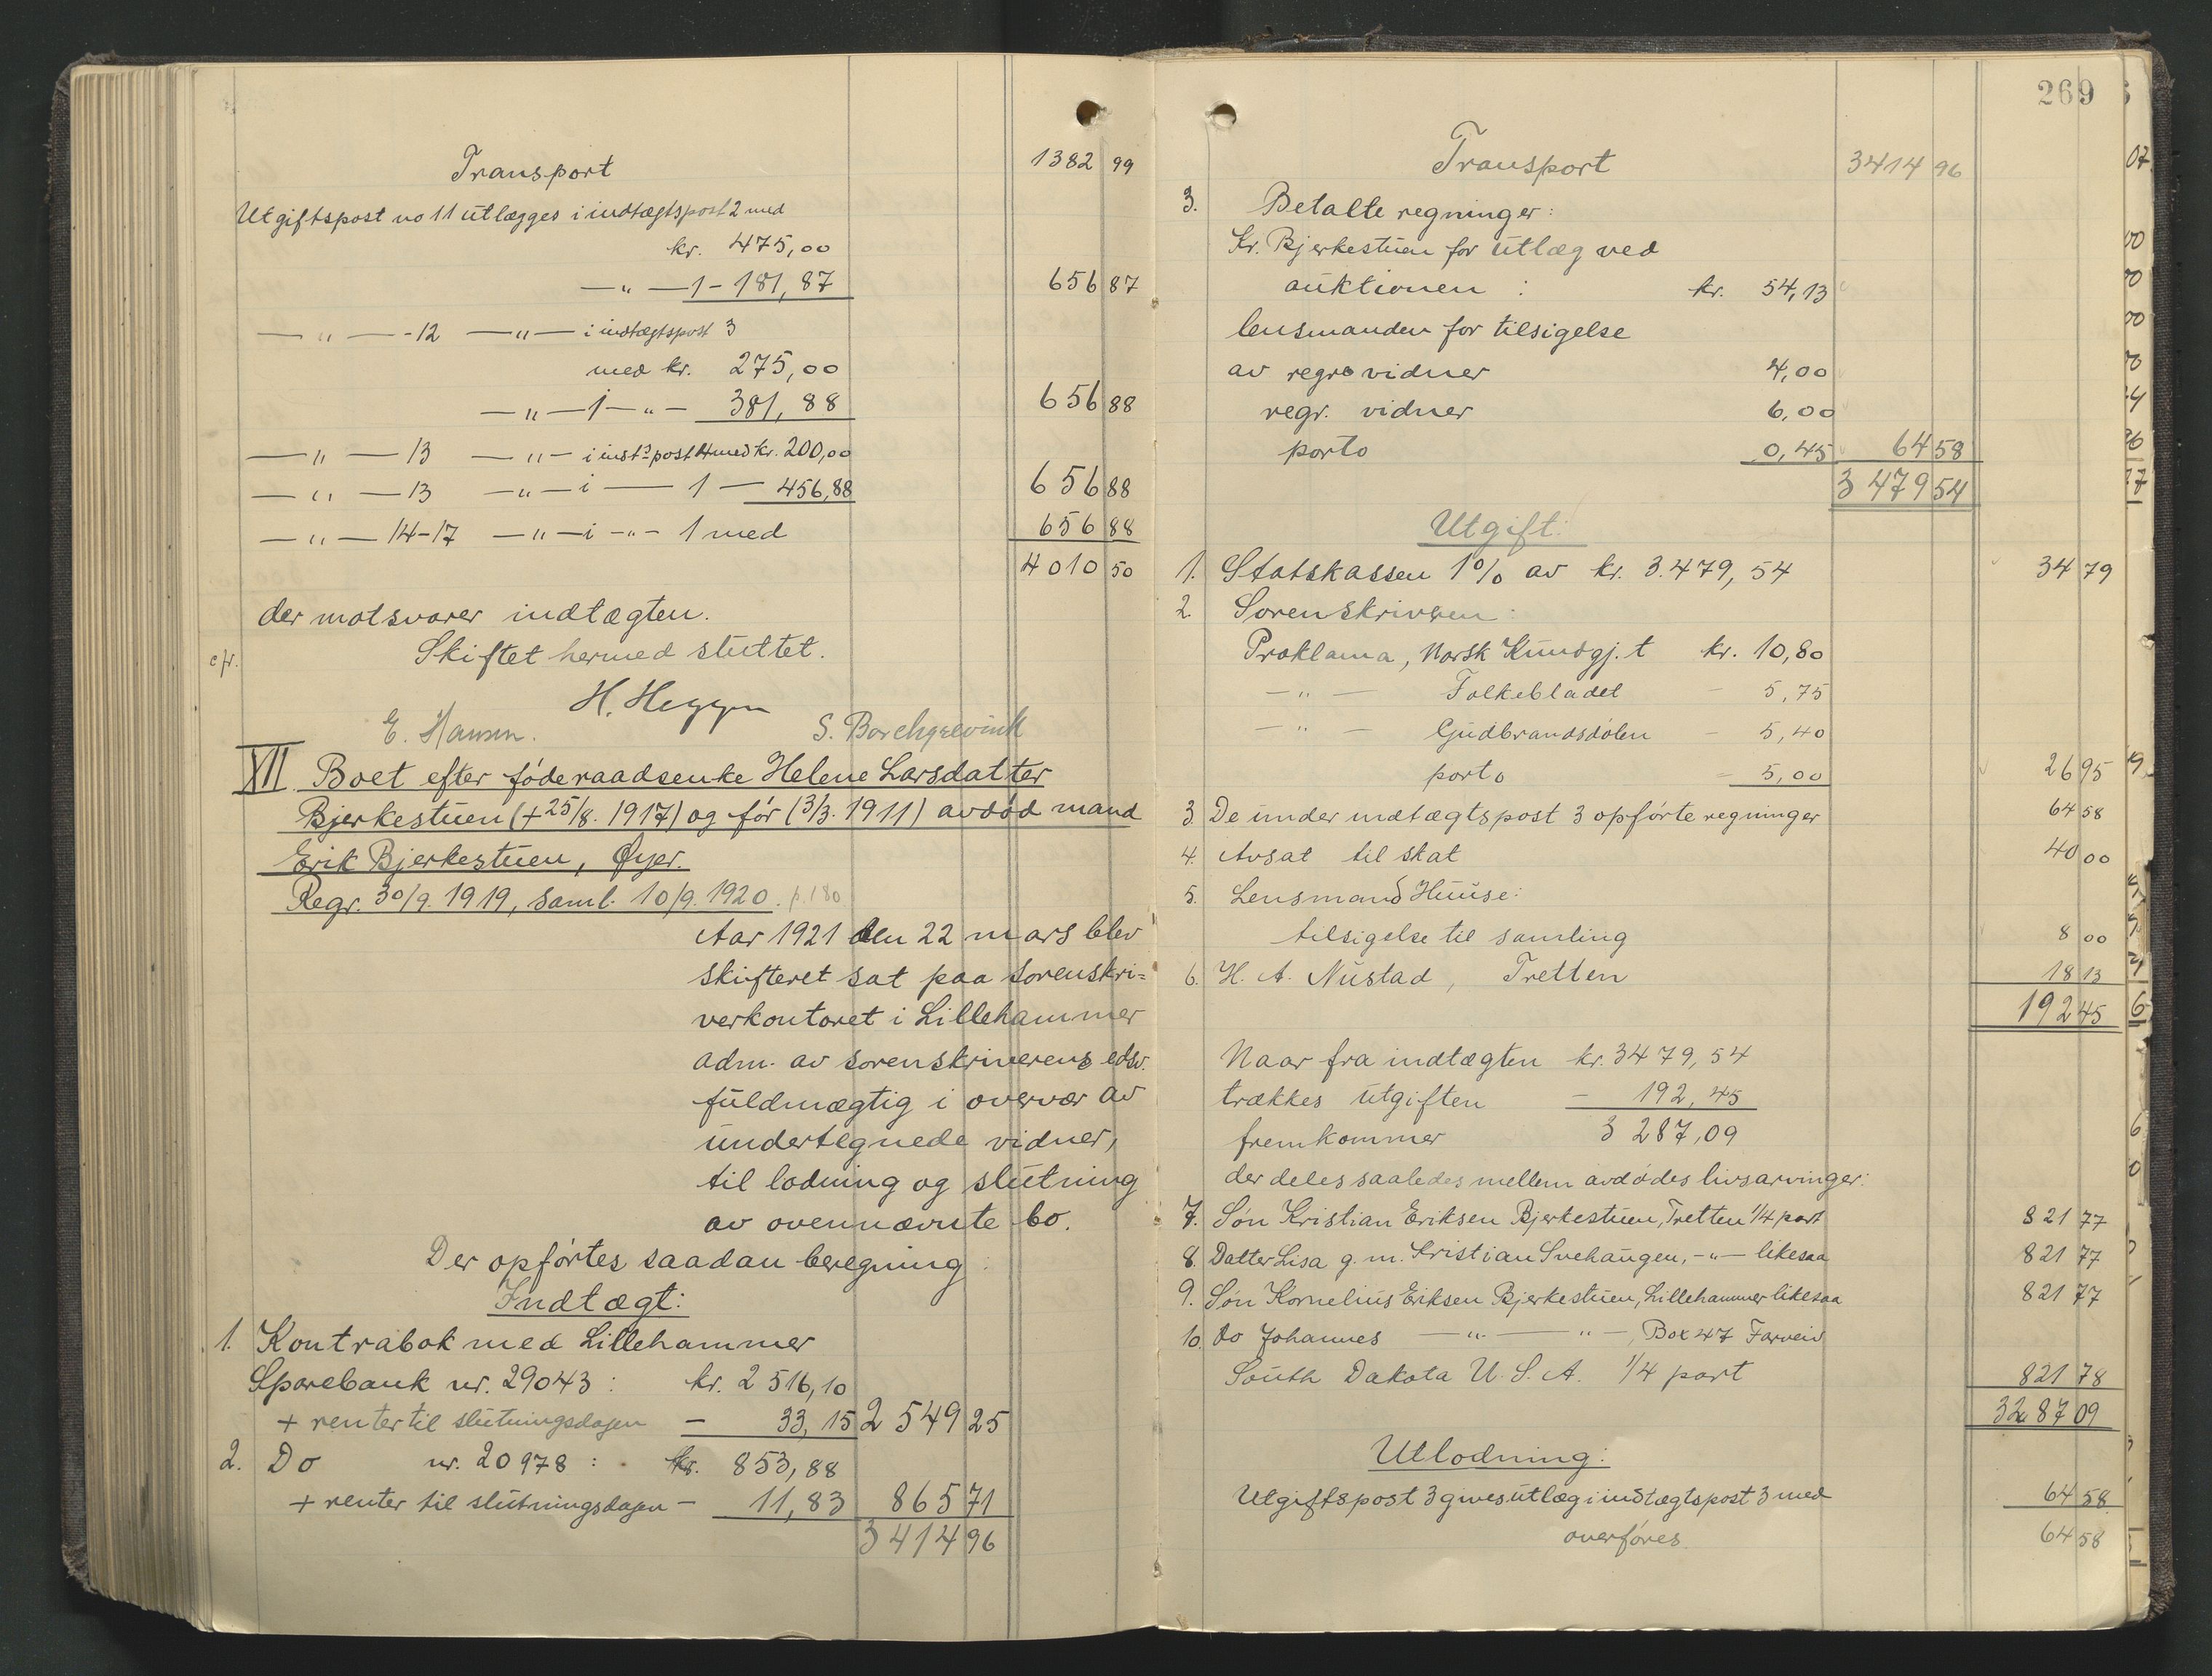 Transport 1382 99
Utgiftspost no 11 utlægges i indtægtspost 2 med
kr. 475,00
— " — 1 - 181,87 656 87
— " — -12 — " — i indtægtspost 3
med kr. 275,00
— " — 1 — " — 381,88 656 88
— " — 13 — " — i indt. post 4 med kr. 200,00
— " — 13 — " — i — 1 — 456,88 656 88
— " — 14-17 — " — i - " - 1 med 656 88
4010 50
der motsvarer indtægten.
cfr. Skiftet hermed sluttet.
H. Heggen
E. Hansen. S. Borchgrevink
XII. Boet efter føderaadsenke Helene Larsdatter
Bjerkestuen (+25/8. 1917) og før (3/3. 1911) avdød mand
Erik Bjerkestuen, Øyer.
Regr. 30/9. 1919, saml. 10/9. 1920. p. 180
Aar 1921 den 22 mars blev
skifteret sat paa sorenskri=
verkontoret i Lillehammer
adm. av sorenskriverens edsv.
fuldmægtig i overvær av
undertegnede vidner,
til lodning og slutning
av ovennævnte bo.
Der opførtes saadan beregning:
Indtægt:
1. Kontrabok med Lillehammer
Sparebank nr. 29043: kr. 2516,10
+ renter til slutningsdagen — 33,15 2549 25
2. Do nr. 20978: kr. 853,88
+ renter til slutningsdagen — 11,83 865 71
3414 96
269
Transport 3414 96
3. Betalte regninger:
Kr. Bjerkestuen for utlæg ved
auktionen: kr. 54,13
lensmanden for tilsigelse
av regr. vidner 4,00
regr. vidner 6,00
porto 0,45 64 58
3479 54
Utgift:
1. Statskassen 1% av kr. 3.479,54 34 79
2. Sorenskriveren:
Proklama, Norsk Kundgj. t kr. 10,80
— " — Folkebladet — 5,75
— " — Gudbrandsdølen — 5,40
porto — 5,00 26 95
3. De under indtægtspost 3 opførte regninger 64 58
4. Avsat til skat 40 00
5. Lensmand Huuse:
tilsigelse til samling 8 00
6. H. A. Nustad, Tretten 18 13
192 45
Naar fra indtægten kr. 3479,54
trækkes utgiften — 192,45
fremkommer 3 287,09
der deles saaledes mellem avdødes livsarvinger:
7. Søn Kristian Eriksen Bjerkestuen, Tretten 1/4 part 821 77
8. Datter Lisa g. m. Kristian Svehaugen, - " — likesaa 821 77
9. Søn Kornelius Eriksen Bjerkestuen, Lillehammer likesaa 821 77
10. Do Johannes — " — " —, Box 47 Farveiv
South Dakota U. S. A. 1/4 part 821 78
3287 09
Utlodning:
Utgiftspost 3 gives utlæg i indtægtspost 3 med 64 58
overføres 64 58